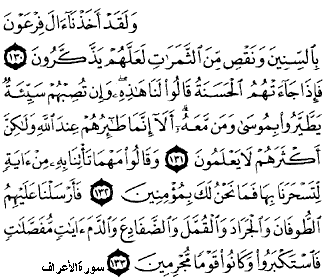 وَلَقَدْ أَخَذْنَآ ءَالَ فِرْعَوْنَ
بِٱلسِّنِينَ وَنَقْصٍ مِّنَ ٱلثَّمَرَٰتِ لَعَلَّهُمْ يَذَّكَّرُونَ ١٣٠
فَإِذَا جَآءَتْهُمُ ٱلْحَسَنَةُ قَالُوا۟ لَنَا هَٰذِهِۦ وَإِن تُصِبْهُمْ سَيِّئَةٌ
يَطَّيَّرُوا۟ بِمُوسَىٰ وَمَن مَّعَهُۥٓ أَلَآ إِنَّمَا طَٰٓئِرُهُمْ عِندَ ٱللَّهِ وَلَٰكِنَّ
أَكْثَرَهُمْ لَا يَعْلَمُونَ ١٣١ وَقَالُوا۟ مَهْمَا تَأْتِنَا بِهِۦ مِنْ ءَايَةٍ
لِّتَسْحَرَنَا بِهَا فَمَا نَحْنُ لَكَ بِمُؤْمِنِينَ ١٣٢ فَأَرْسَلْنَا عَلَيْهِمُ
ٱلطُّوفَانَ وَٱلْجَرَادَ وَٱلْقُمَّلَ وَٱلضَّفَادِعَ وَٱلدَّمَ ءَايَٰتٍ مُّفَصَّلَٰتٍ
فَٱسْتَكْبَرُوا۟ وَكَانُوا۟ قَوْمًا مُّجْرِمِينَ ١٣٣
سورة الأعراف